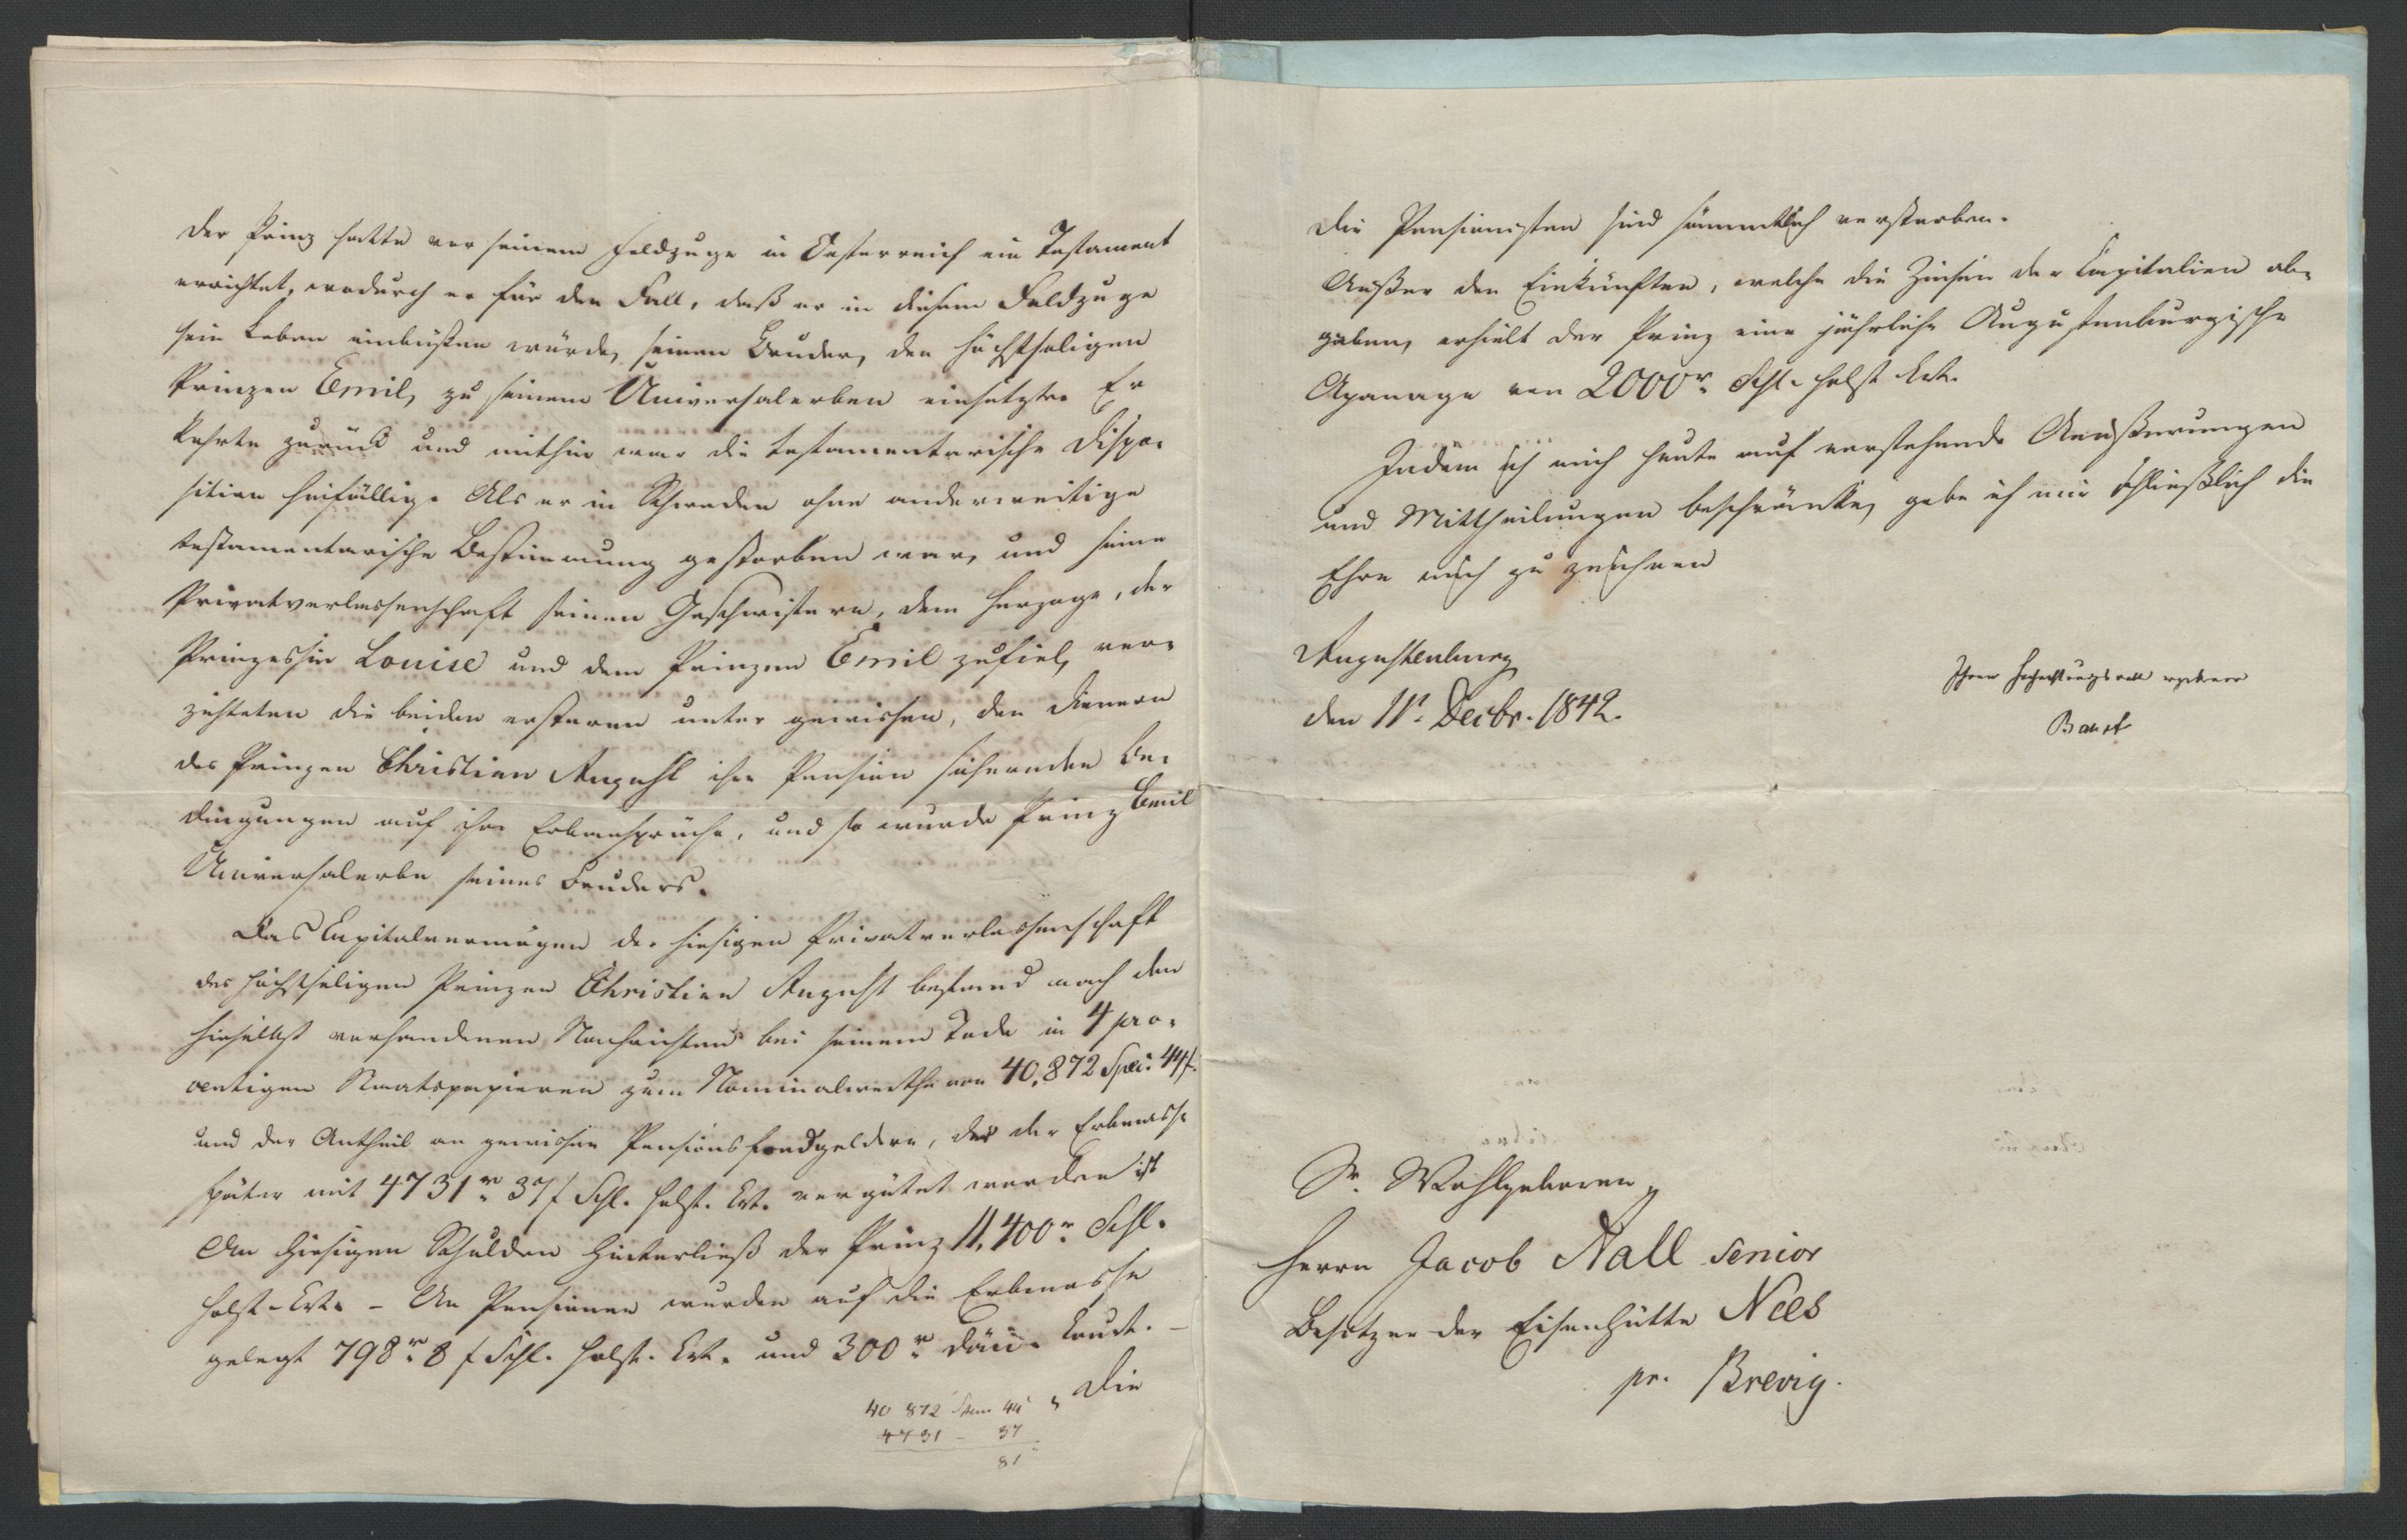 Der Prinz hatte vor seinem Feldzuge in Oesterreich ein Testament
errichtet, wodurch er für den Fall, daß er in diesem Feldzuge
sein Leben einbüßen würde, seinen Bruder, den höchstseligen
Prinzen Emil, zu seinem Universalerben einsetzte. Er
kehrte zurück und mithin war die testamentarische Dispo-
sition hinfällig. Als er in Schweden ohne anderweitige
testamentarische Bestimmung gestorben war, und seine
Privatverlassenschaft seinen Geschwistern, dem Herzoge, der
Prinzessin Louise und dem Prinzen Emil zufiel, ver-
zichteten die beiden ersteren unter gewissen, den Dienern
des Prinzen Christian August ihre Pension sichernden Be-
dingungen auf ihre Erbansprüche, und so wurde Prinz Emil
Universalerbe seines Bruders.
Das Capitalvermögen der hiesigen Privatverlassenschaft
des höchstseligen Prinzen Christian August bestand nach den
hieselbst vorhandenen Nachrichten bei seinem Tode in 4 pro-
centigen Staatspapieren zum Nominalwerthe von 40,872 Spec. 44 ß.
und der Antheil an gewissen Pensionsfondgeldern, der der Erbmasse
später mit 4731 r 37 ß Schl. Holst. Crt. vergütet worden ist
An hiesigen Schulden hinterließ der Prinz 11,400 r Schl.
Holst. Crt. - An Pensionen wurden auf die Erbmasse
gelegt 798 r 8 ß Schl. Holst. Crt. und 300 r dän. Court. -
Die
40 872 44
4731 - 37
81
Die Pensionisten sind sämmtlich verstorben.
Außer den Einkünften, welche die Zinsen der Capitalien ab-
gaben, erhielt der Prinz eine jährliche Augustenburgische
Apanage von 2000 r Schl. Holst. Crt.
Indem ich mich heute auf vorstehende Aeußerungen
und Mittheilungen beschränke, gebe ich mir schließlich die
Ehre mich zu zeichnen
Augustenburg
den 11t Decbr. 1842.
Ihren hochachtungsvoll ergebenen
Sr. Wohlgeboren,
Herrn Jacob Aall senior
Besitzer der Eisenhütte Nees
pr. Brevig.